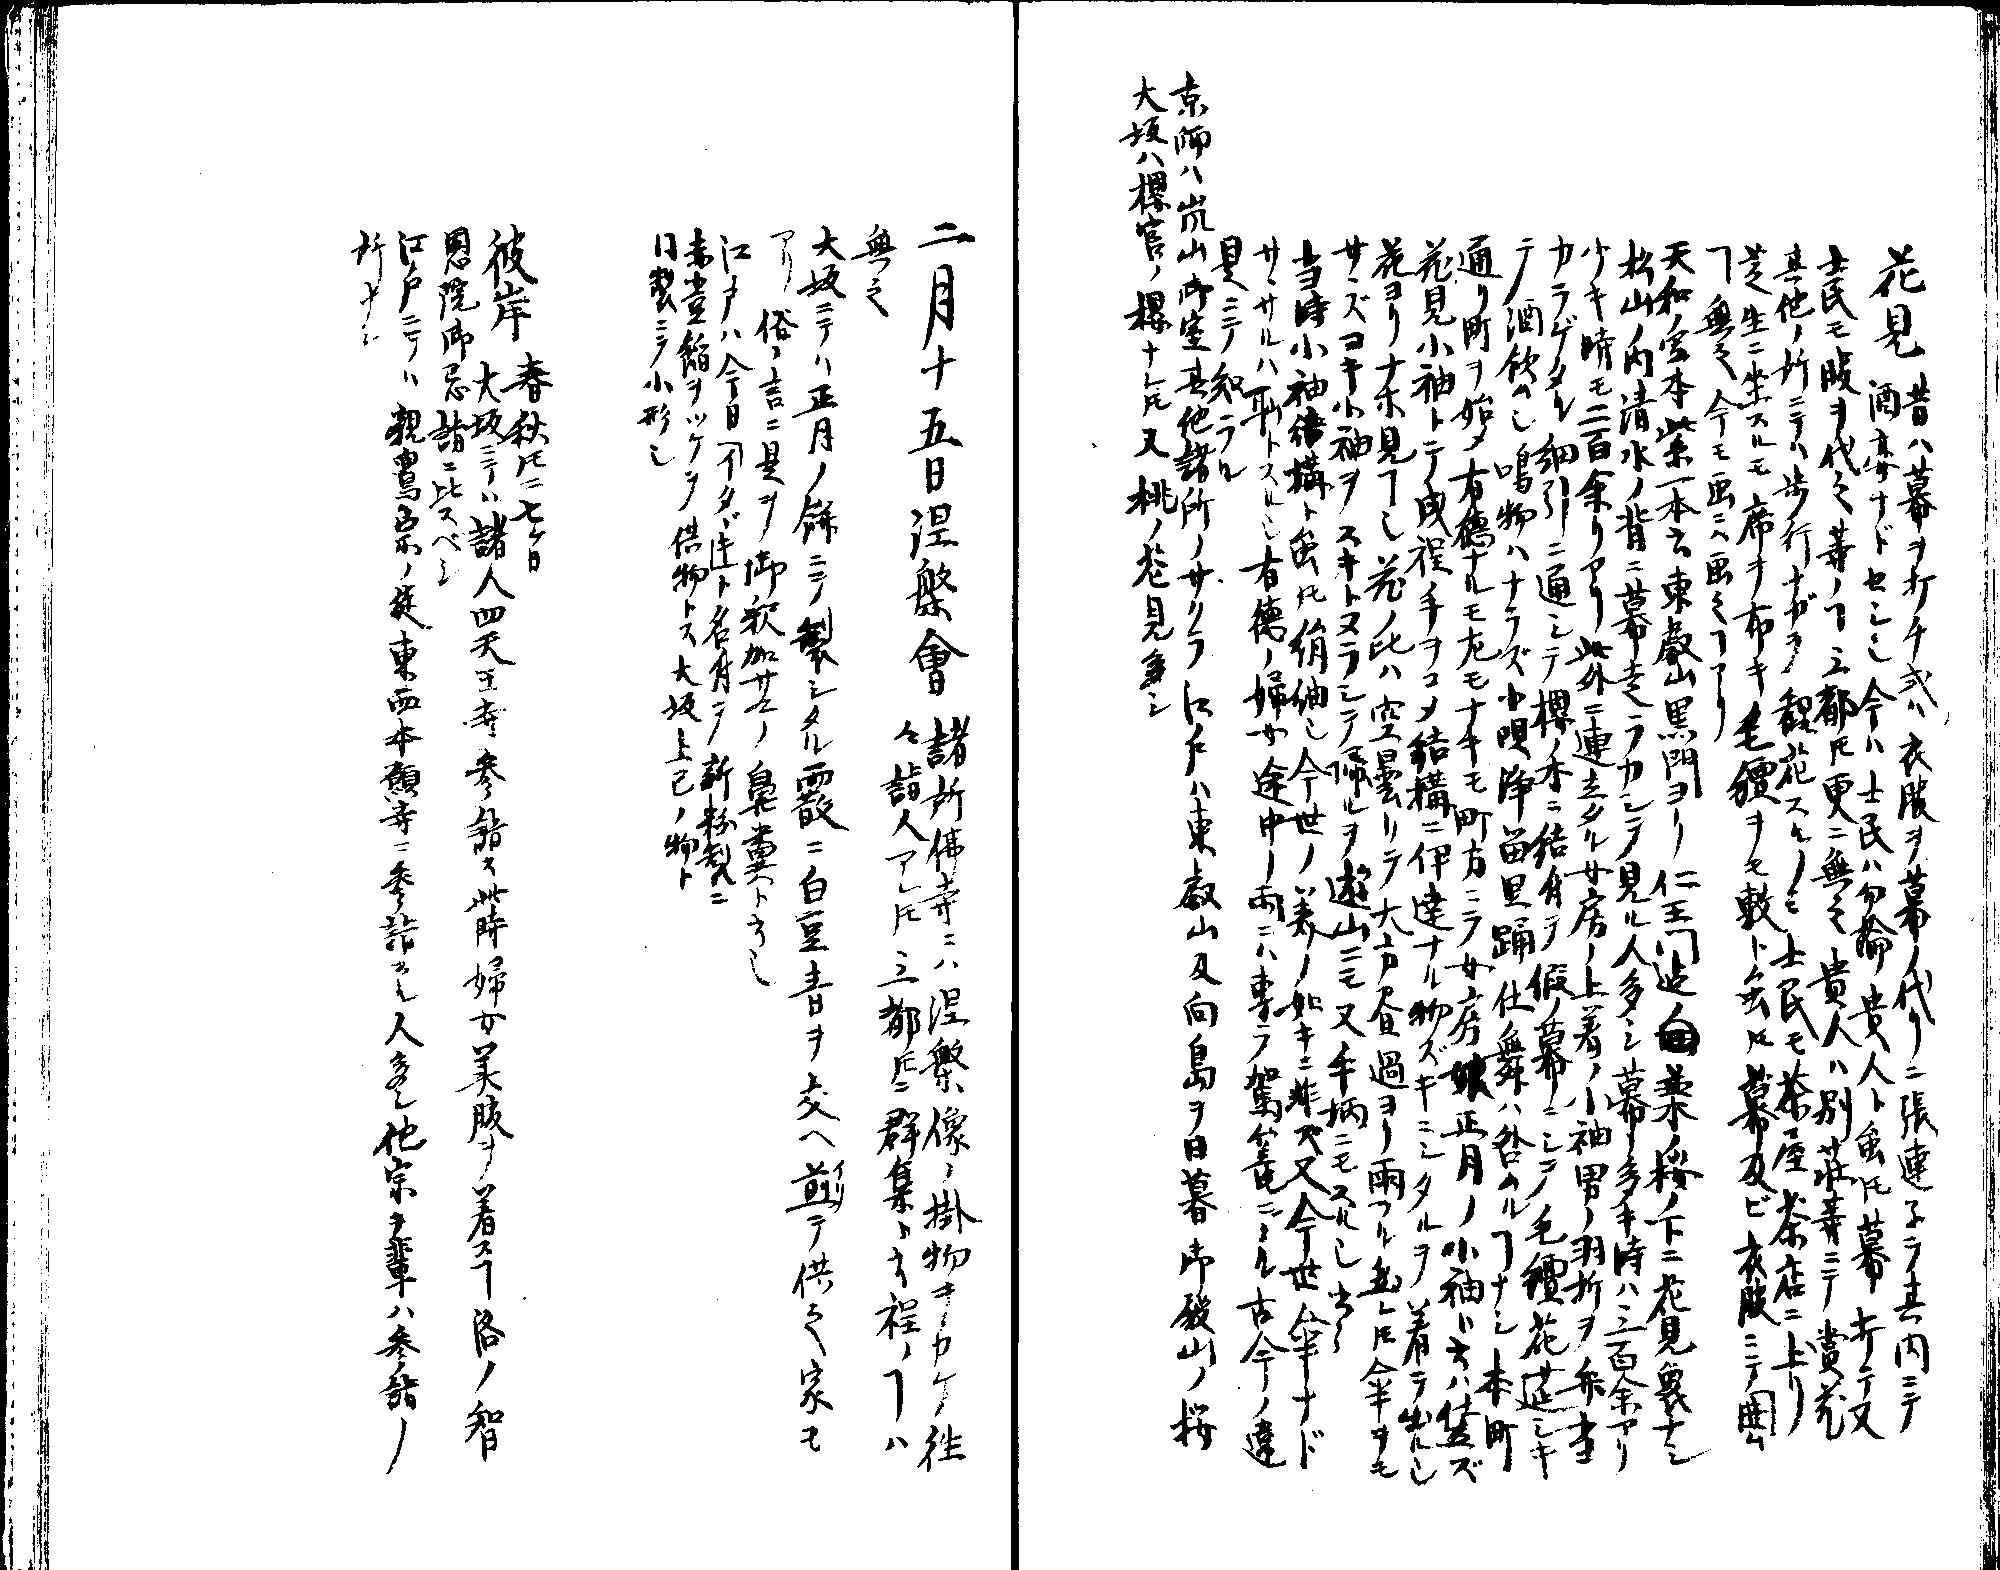 花見 昔ハ幕ヲ打チ或ハ衣服ヲ幕ノ代リニ張連子テ其内ニテ
酒宴ナドセシ也今ハ士民ハ勿論貴人ト虽𪜈幕打テ又
士民モ服ヲ代之等ノヿ三都𪜈更ニ無之貴人ハ別荘等ニテ賞花
其他ノ所ニテハ歩行ナガラ観花スルノミ士民モ茶屋茶店ニ上リ
芝生ニ坐スルモ席ヲ布キ毛氈ヲモ敷ト虽𪜈幕及ビ衣服ニテ囲ム
ヿ無之今モ画ニハ画之ヿアリ
天和ノ宮本紫一本云東叡山黒門ヨリ仁王門迄並木ノ桜ノ下ニ花見衆ナシ
松山ノ内清水ノ背ニ幕走ラカシテ見ル人多シ幕ノ多キ時ハ三百余アリ
少キ時モ二百余リアリ此外ニ連立タル女房ノ上着ノ小袖男ノ羽折ヲ弁当
カラゲタル細引ニ通シテ櫻ノ木ニ結付テ假ノ幕ニシテ毛氈花莚シキ
テ酒飲也鳴物ハナラズ小唄浄留里踊仕舞ハ咎ルヿナシ本町
通リ町ヲ始メ有徳ナルモ尤モナキモ町方ニテ女房娘正月ノ小袖ト云ハ仕立ズ
花見小袖トテ成程手ヲコメ結構ニ伊達ナル物ズキニシタルヲ着テ出ル也
花ヨリナホ見事也花ノ比ハ空曇リテ大方昼過ヨリ雨フル虽𪜈傘ヲモ
サヽズヨキ小袖ヲスキトヌラシテ帰ルヲ遊山ニモ又手柄ニモスル也
当時小袖結構ト虽𪜈絹紬也今世ノ美ノ如キニ非ズ又今世傘ナド
サヽサルハ恥トスル也有徳ノ婦女途中ノ雨ニハ専ラ駕篭ニノル古今ノ違
見ニテ知ラル
京師ハ嵐山御室其他諸所ノサクラ江戸ハ東叡山及向島ヲ日暮御殿山ノ桜
大坂ハ櫻宮ノ櫻ナレ𪜈又桃ノ花見多シ
二月十五日涅槃會 諸所佛寺ニハ涅槃像ノ掛物ヲカケ往
々詣人アレ𪜈三都𪜈ニ群集ト云程ノヿハ
無之
大坂ニテハ正月ノ餅ニテ製シタル霰ニ白豆青ヲ交ヘ煎イリテ供之家モ
アリ俗ノ言ニ是ヲ御釈加サマノ鼻糞ト云也
江戸ハ今日
赤豆餡ヲツケテ供物トス大坂上巳ノ物ト
同製ニテ小形也
彼岸 春秋𪜈ニ七ケ日
大坂ニテハ諸人四天王寺参詣ス此時婦女美服ヲ着スヿ洛ノ智
恩院御忌詣ニ比スベシ
江戸ニテハ親鸞宗ノ徒東西本願寺ニ参詣スル人多シ他宗ノ輩ハ参詣ノ
所ナシ